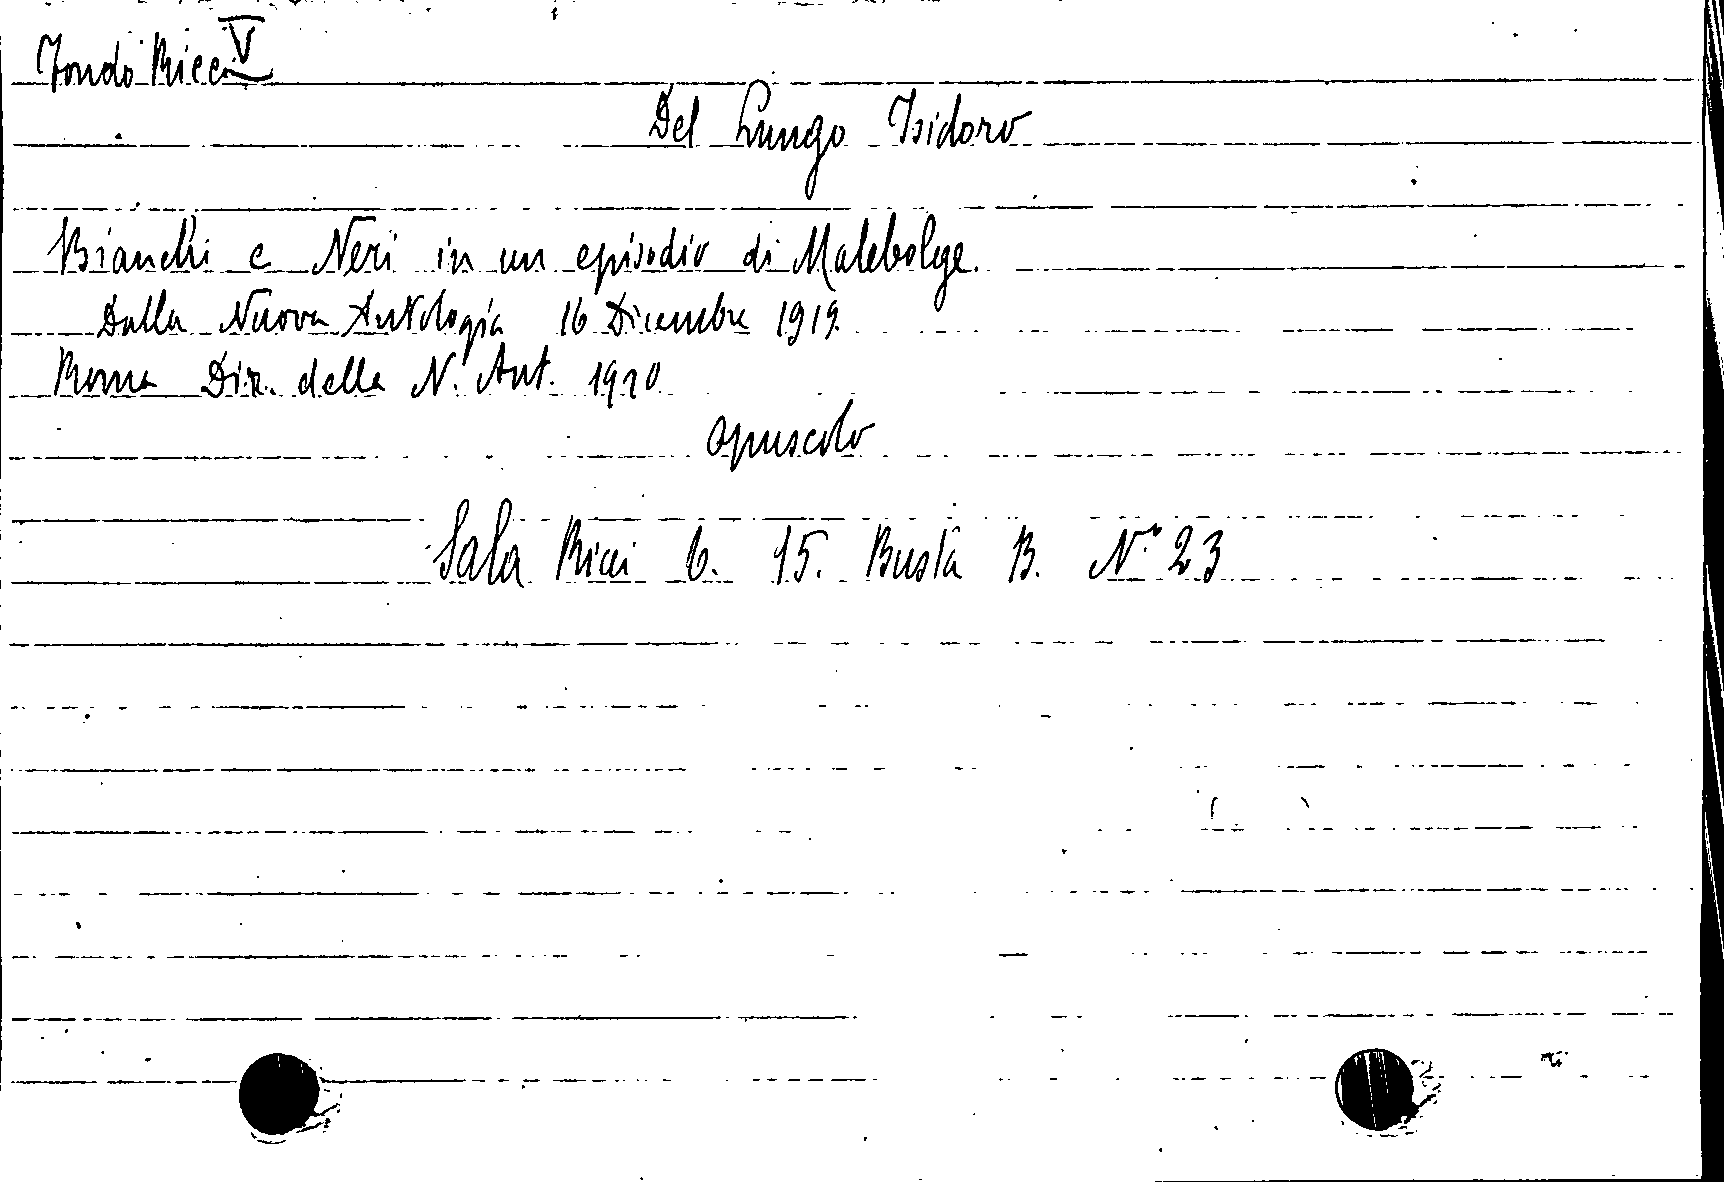 Fondo Ricci V
Del Lungo Isidoro
Bianchi e Neri in un episodio di Malebolge.
Dalla Nuova Antologia 16 Dicembre 1919.
Roma Dir. della N. Ant. 1920
opuscolo
Sala Ricci 6. 15. Busta B. N.° 23